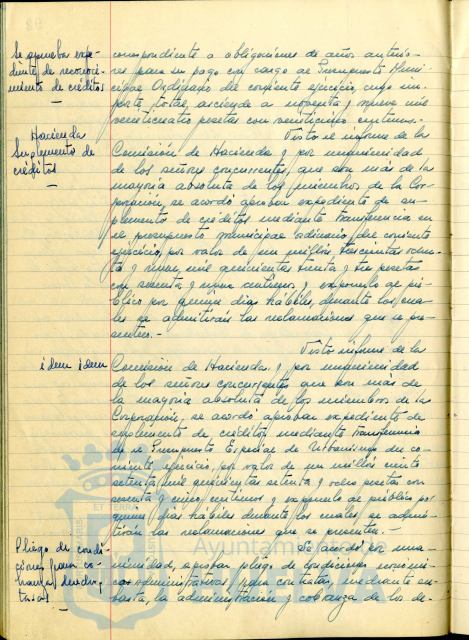 Se aprueba expe-
diente de reconoci-
miento de créditos
correspondiente a obligaciones de años anterio-
res para su pago con cargo al Presupuesto Muni-
cipal Ordinario del corriente ejercicio, cuyo im-
porte total, asciende a noventa y nueve mil
veinticuatro pesetas con veinticinco centimos.
Hacienda
Suplemento de
créditos
Visto el informe de la
Comisión de Hacienda y por unanimidad
de los señores concurrentes, que son más de la
mayoria absoluta de los miembros de la Cor-
poración, se acordó aprobar expediente de su-
plemento de créditos mediante transferencia en
el presupuesto municipal ordinario del corriente
ejercicio, por valor de un millón, trescientas ochen-
ta y nueve mil quinientas treinta y tres pesetas
con noventa y nueve centimos y exponerlo al pú-
blico por quince dias hábiles, durante los cua-
les se admitirán las reclamaciones que se pre-
senten.-
idem idem
Visto informe de la
Comisión de Hacienda y por unanimidad
de los señores concurrentes que son más de
la mayoria absoluta de los miembros de la
Corporación, se acordó aprobar expediente de
suplemento de créditos mediante transferencia
de el Presupuesto Especial de Urbanismo del co-
rriente ejercicio, por valor de un millón ciento
setenta mil quinientas setenta y ocho pesetas con
y cinco centimos y exponerlo al público por
quince dias hábiles durante los cuales se admi-
tirán las reclamaciones que se presenten.-
Pliego de condi-
ciones para co-
branza
Se acordó por una-
nimidad, aprobar pliego de condiciones económi-
co administrativas para contratar, mediante su-
basta, la administración y cobranza de los de-
Ayuntamiento
ET TERRA